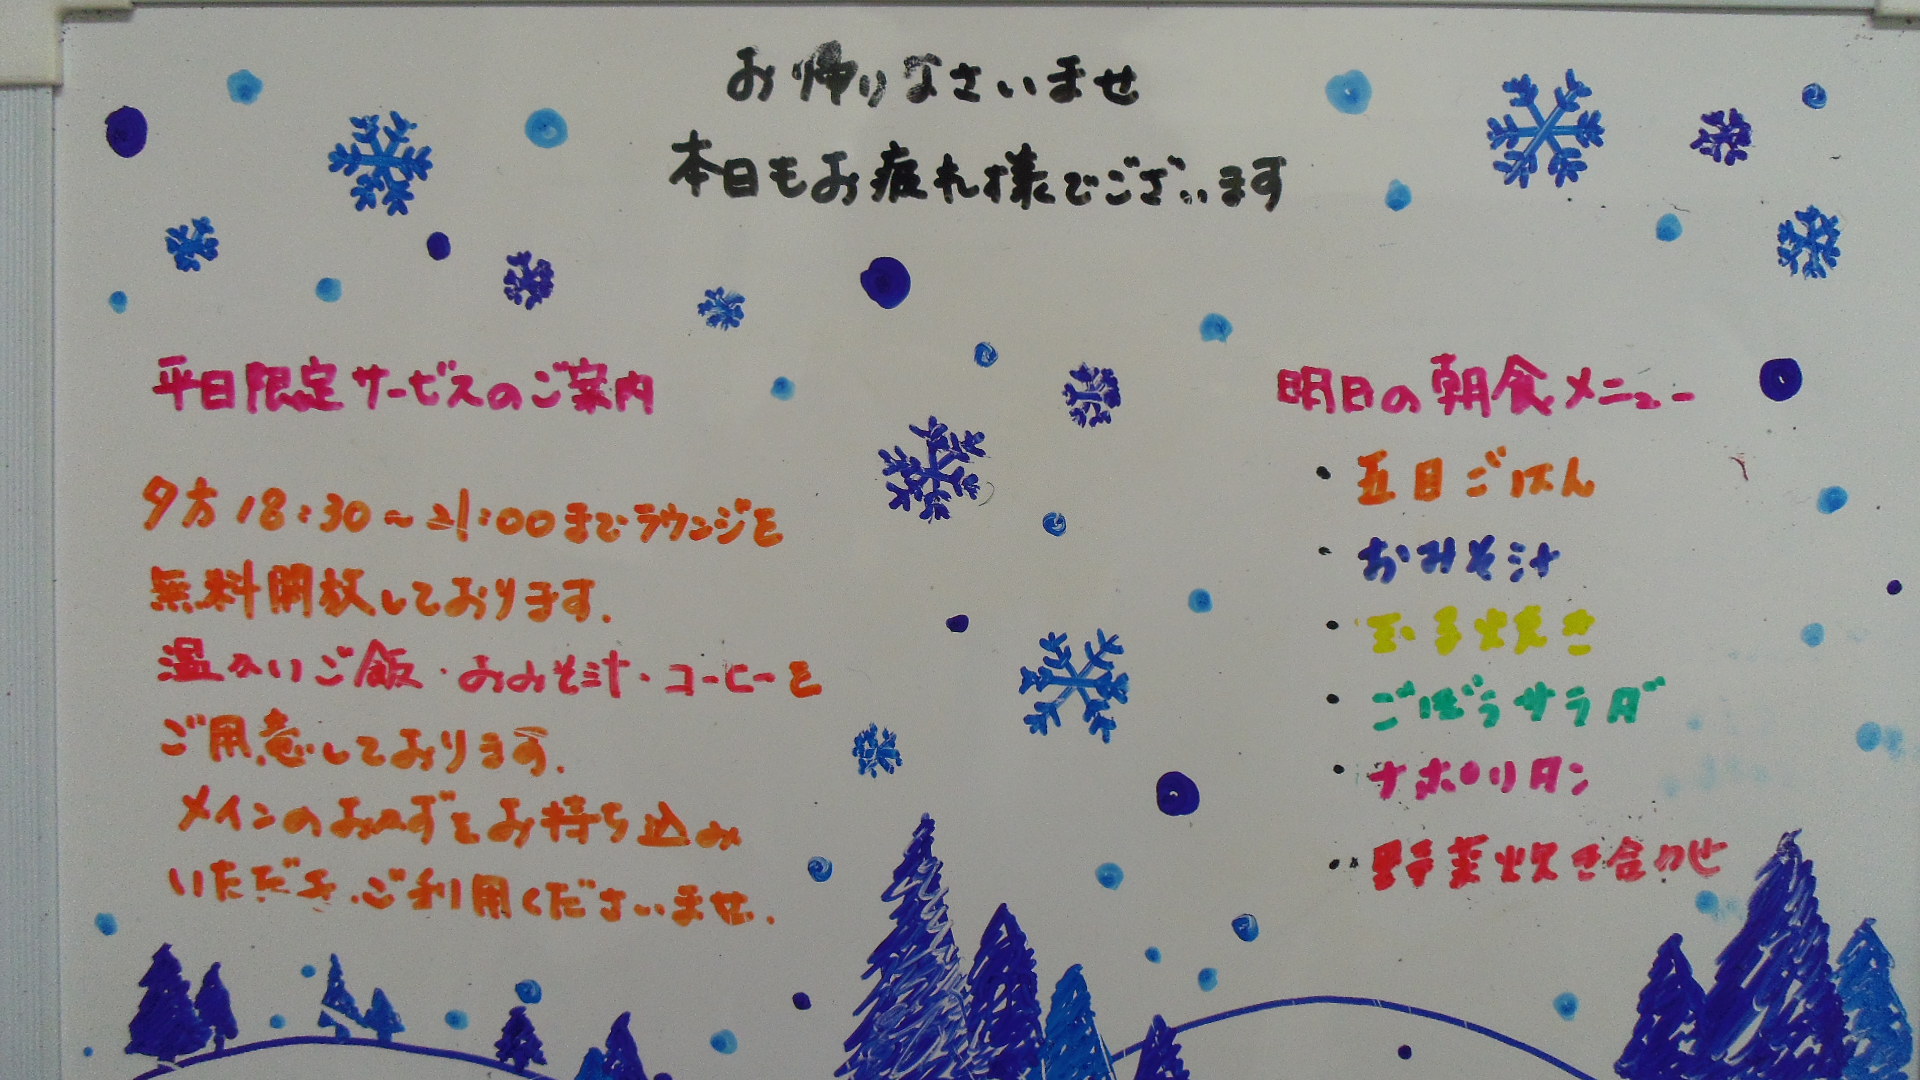 お帰りなさいませ
本日もお疲れ様でございます
平日限定サービスのご案内
夕方18:30～21:00までラウンジを
無料開放しております.
温かいご飯・おみそ汁・コーヒーを
ご用意しております.
メインのおかずをお持ち込み
いただき、ご利用くださいませ.
明日の朝食メニュー
・五目ごはん
・おみそ汁
・玉子焼き
・ごぼうサラダ
・ナポリタン
・野菜炊き合わせ